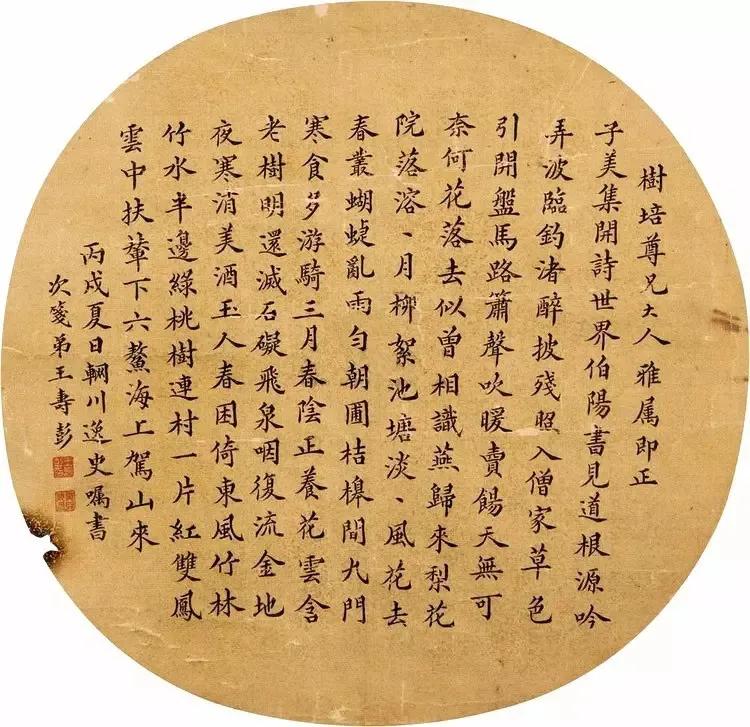 樹培尊兄大人雅属即正
子美集開詩世界伯陽書見道根源吟
弄波臨釣渚醉披殘照入僧家草色
引開盤馬路簫聲吹暖賣餳天無可
奈何花落去似曾相識燕歸來梨花
院落溶、月柳絮池塘淡、風花去
春叢蝴蜨亂雨勻朝圃桔槔閒九門
寒食多游騎三月春陰正養花雲含
老樹明還滅石礙飛泉咽復流金地
夜寒消美酒玉人春困倚東風竹林
竹水半邊綠桃樹連村一片紅雙鳳
雲中扶輦下六鰲海上駕山來
丙戌夏日輞川逸史嘱書
次箋弟王壽彭